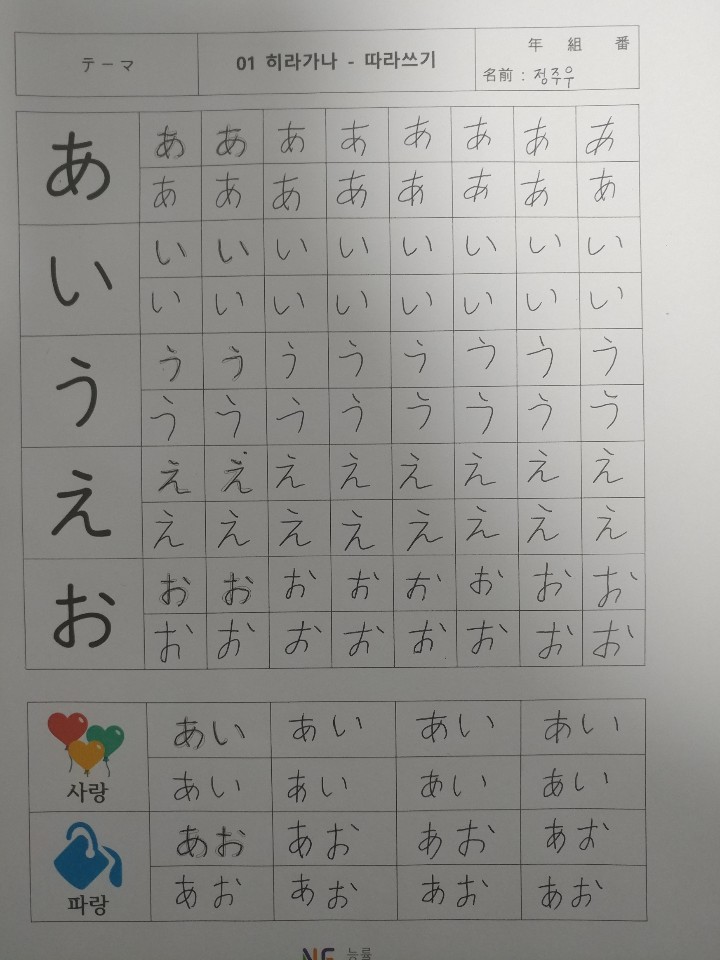 テーマ 01 히라가나 - 따라쓰기 年 組 番
名前 : 정주우
あ あ あ あ あ あ あ あ あ
あ あ あ あ あ あ あ あ
い い い い い い い い い
い い い い い い い い
う う う う う う う う う
う う う う う う う う
え え え え え え え え え
え え え え え え え え
お お お お お お お お お
お お お お お お お お
あい あい あい あい
사랑 あい あい あい あい
あお あお あお あお
파랑 あお あお あお あお
NE 능률